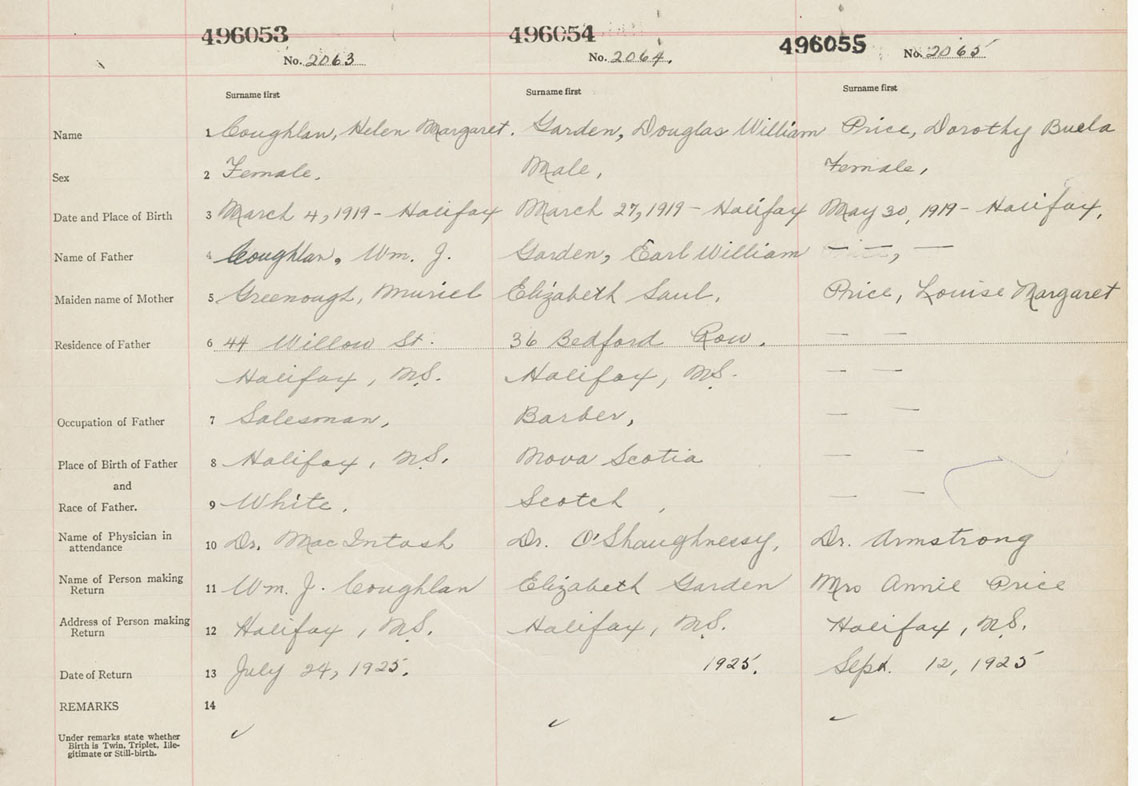 496053 496054 496055
No. 2063 No. 2064. No. 2065
Surname first Surname first Surname first
Name 1 Coughlan, Helen Margaret. Garden, Douglas William Price, Dorothy Buela
Sex 2 Female. Male, Female,
Date and Place of Birth 3 March 4, 1919 - Halifax March 27, 1919 - Halifax May 30, 1919 - Halifax.
Name of Father 4 Coughlan, Wm. J. Garden, Earl William — —, —
Maiden name of Mother 5 Greenough, Muriel Elizabeth Saul. Price, Louise Margaret
Residence of Father 6 44 Willow St. 36 Bedford Row. — —
Halifax, N.S. Halifax, N.S. — —
Occupation of Father 7 Salesman, Barber, — —
Place of Birth of Father 8 Halifax, N.S. Nova Scotia — —
and
Race of Father. 9 White. Scotch, — —
Name of Physician in
attendance 10 Dr. MacIntosh Dr. O'Shaughnessy, Dr. Armstrong
Name of Person making
Return 11 Wm. J. Coughlan Elizabeth Garden Mrs Annie Price
Address of Person making
Return 12 Halifax, N.S. Halifax, N.S. Halifax, N.S.
Date of Return 13 July 24, 1925. 1925. Sept. 12, 1925
REMARKS 14
Under remarks state whether
Birth is Twin, Triplet, Ille-
gitimate or Still-birth.